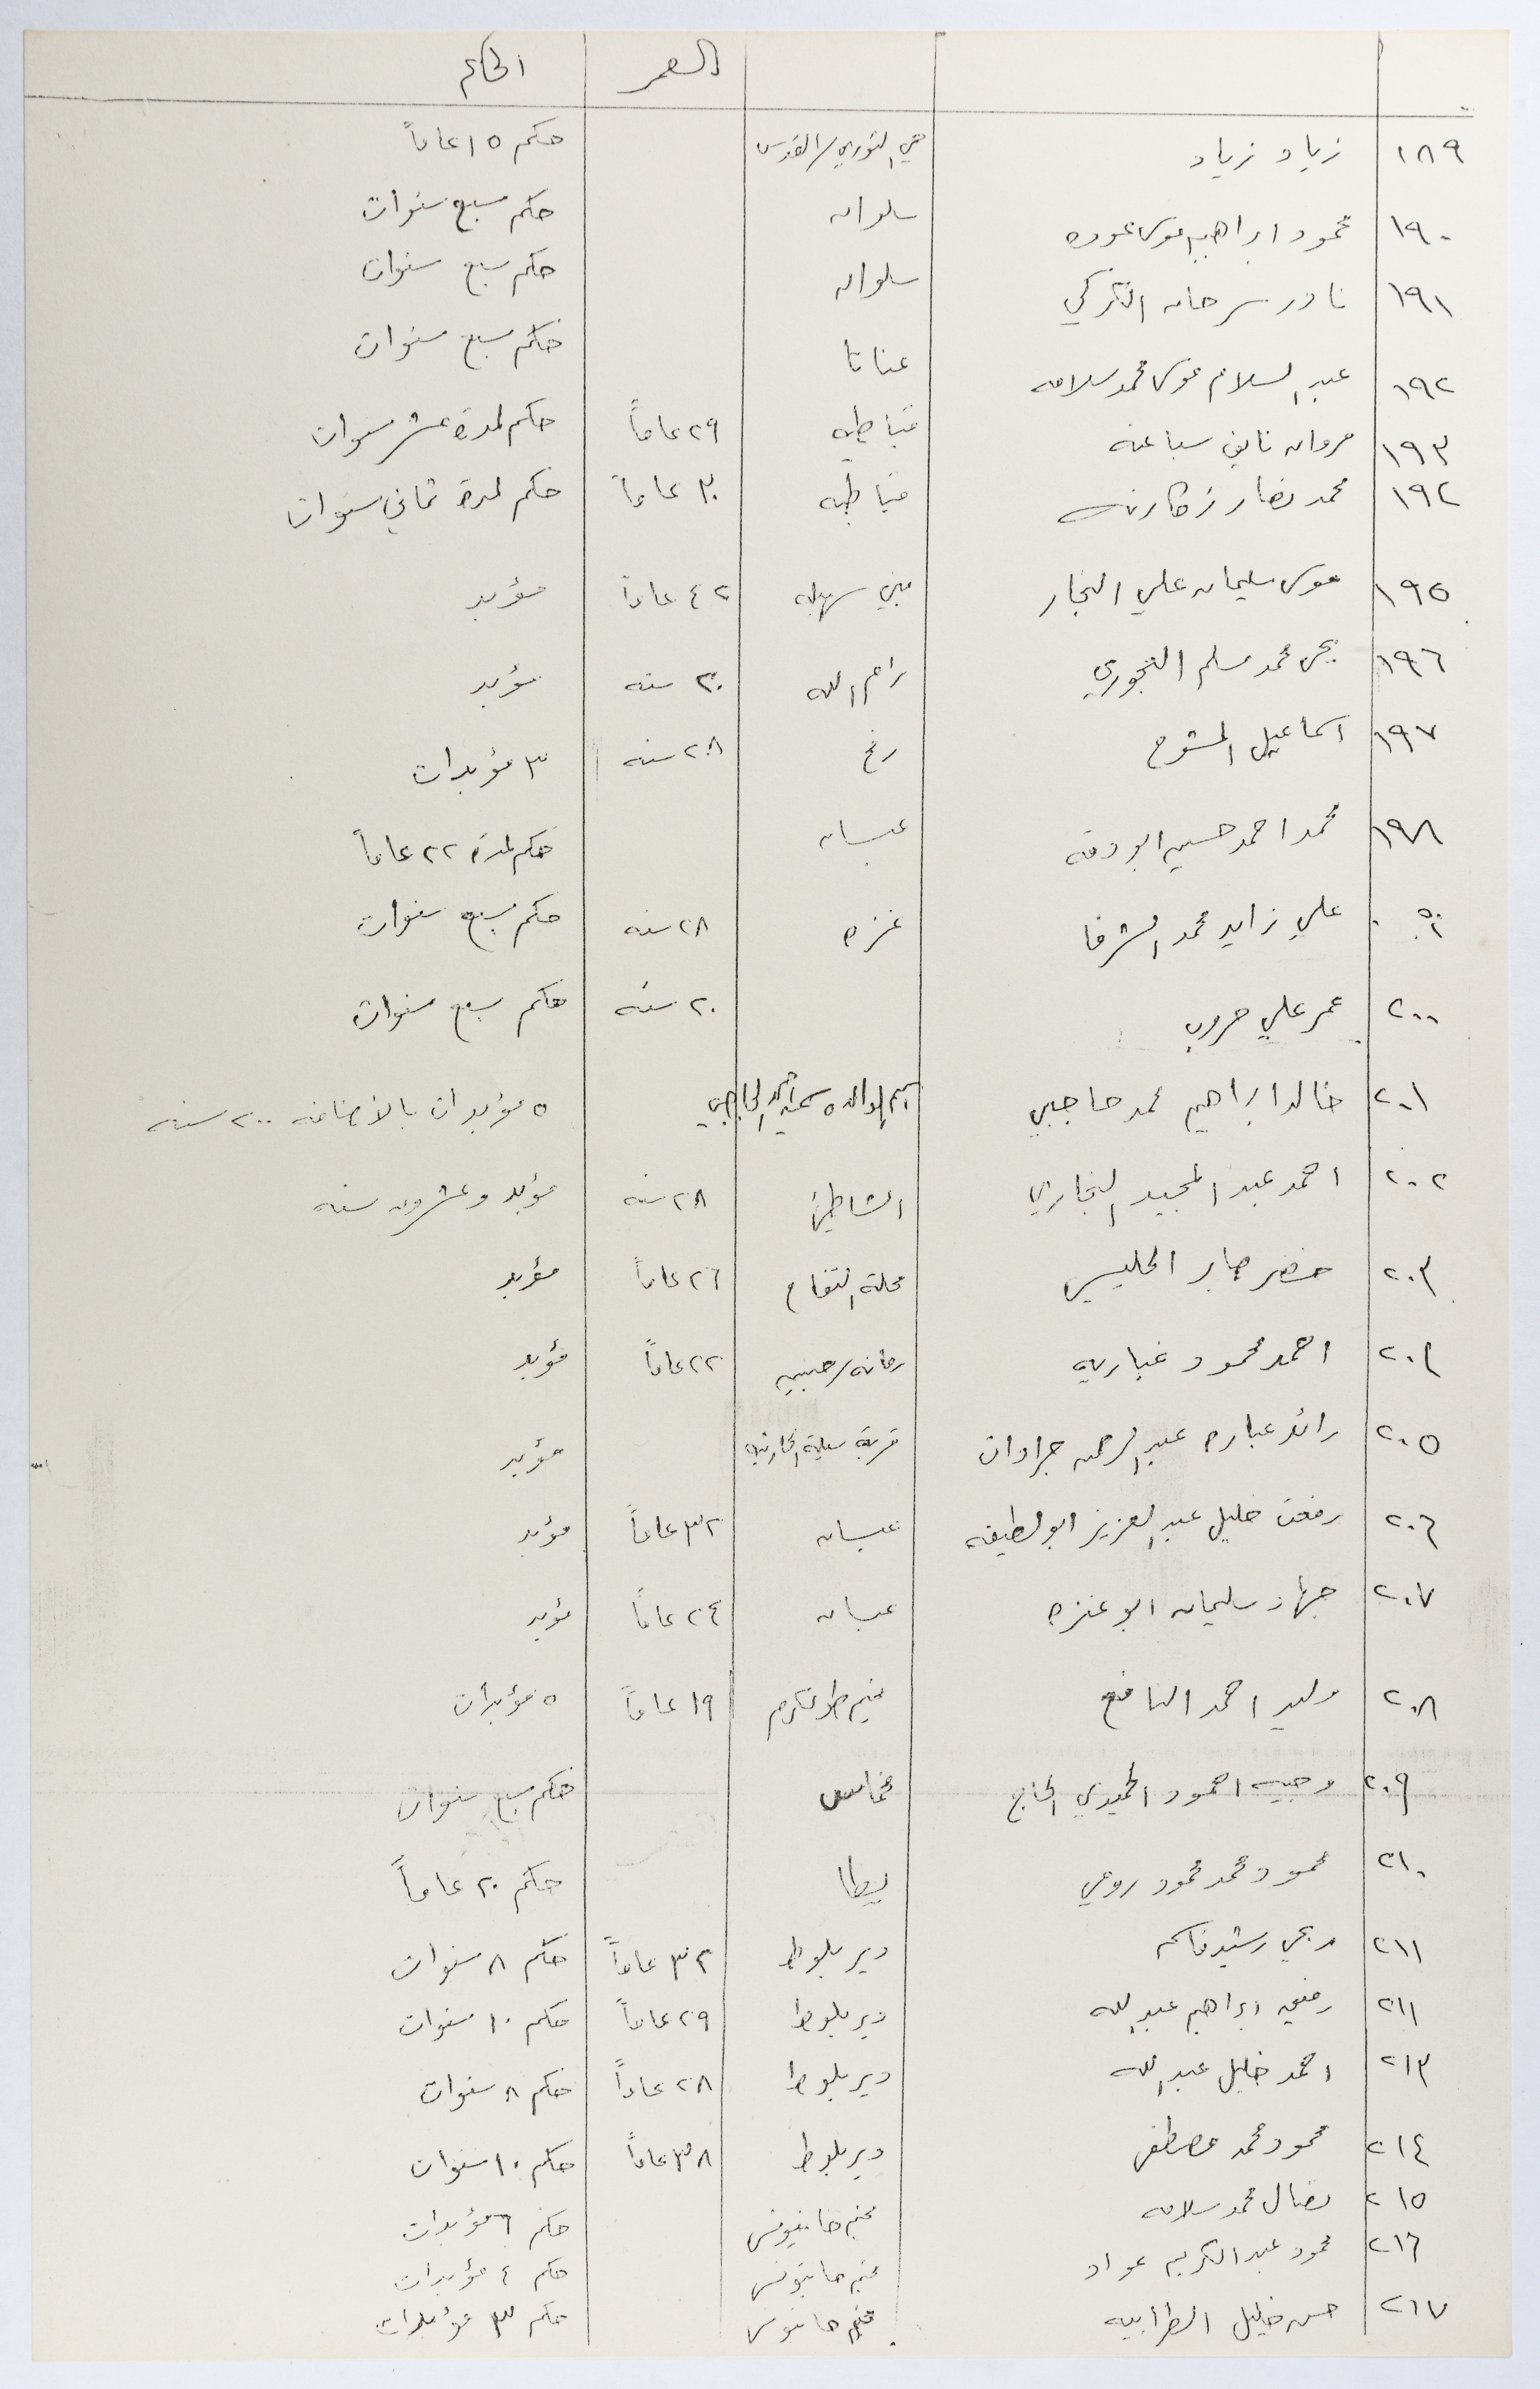 العمر الحكم
١٨٩ زياد زياد حي الثوري/القدس حكم ١٥ عاماً
١٩٠ محمود ابراهيم موسى عوده سلوان حكم سبع سنوات
١٩١ نادر سرحان الكركي سلوان حكم سبع سنوات
١٩٢ عبد السلام موسى محمد سلامه عناتا حكم سبع سنوات
١٩٣ مروان نايف سباعنه قباطيه ٢٩ عاماً حكم لمدة عشر سنوات
١٩٤ محمد نصار زكارنه قباطيه ٣٠ عاماً حكم لمدة ثماني سنوات
١٩٥ موسى سليمان علي النجار بني سهيله ٤٢ عاماً مؤبد
١٩٦ يحيى محمد مسلم النجوري رام الله ٣٠ سنه مؤبد
١٩٧ اسماعيل المشوح رفح ٢٨ سنه ٣ مؤبدات
١٩٨ محمد احمد حسين ابو دقه عبسان حكم لمدة ٢٢ عاماً
علي زايد محمد الشرفا غزه ٢٨ سنه حكم سبع سنوات
٢٠٠ عمر علي حروب ٢٠ سنه حكم سبع سنوات
٢٠١ خالد ابراهيم محمد حاجبي اسم الوالده سميه ٥ مؤبدات بالاضافه ٢٠٠ سنه
٢٠٢ احمد عبد المجيد النجاري الشاطئ ٢٨ سنه مؤبد وعشرون سنه
٢٠٣ خضر جابر الحليسي محلة التفاح ٢٦ عاماً مؤبد
٢٠٤ احمد محمود غباريه رمانه/جنين ٢٢ عاماً مؤبد
٢٠٥ رائد عباره عبد الرحمن جرادات قرية سيلة الحارثيه مؤبد
٢٠٦ رفعت خليل عبد العزيز ابو لطيفه عبسان ٣٢ عاماً مؤبد
٢٠٧ جهاد سليمان ابو عنزه عبسان ٢٤ عاماً مؤبد
٢٠٨ وليد احمد النافع مخيم طولكرم ١٩ عاماً ٥ مؤبدات
٢٠٩ وجيه احمود الحميدي الحاج مخماس حكم سبع سنوات
٢١٠ محمود محمد محمود رومي يطا حكم ٢٠ عاماً
٢١١ ربحي رشيد قاسم دير بلوط ٣٢ عاماً حكم ٨ سنوات
٢١١ رفيق ابراهيم عبد الله دير بلوط ٢٩ عاماً حكم ١٠ سنوات
٢١٣ احمد خليل عبد الله دير بلوط ٢٨ عاماً حكم ٨ سنوات
٢١٤ محمود محمد مصطفى دير بلوط ٣٨ عاماً حكم ١٠ سنوات
٢١٥ نضال محمد سلامه مخيم خانيونس حكم ٦ مؤبدات
٢١٦ محمود عبد الكريم عواد مخيم خانيونس حكم ٤ مؤبدات
٢١٧ حسن خليل الطرابيه مخيم خانيونس حكم ٣ مؤبدات